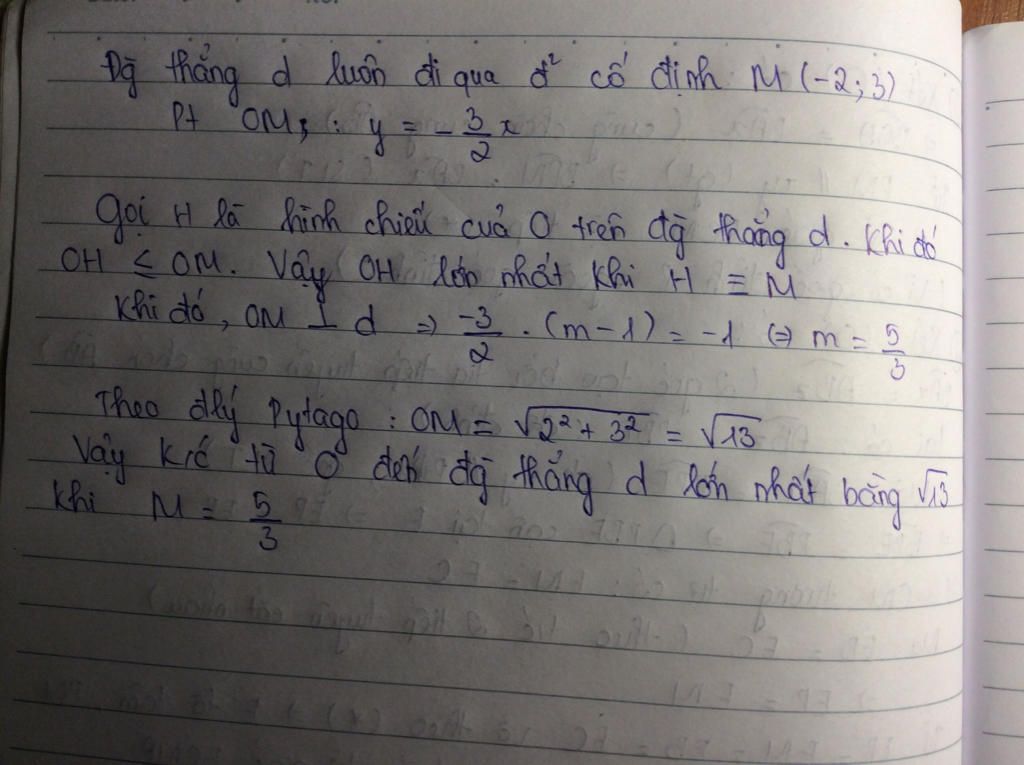 Đg̃ thẳng d luôn đi qua đ² cố định M (-2; 3)
Pt OM : y = -3/2 x
Gọi H là hình chiếu của O trên đg̃ thẳng d. Khi đó
OH ≤ OM. Vậy OH lớn nhất khi H ≡ M
Khi đó, OM ⊥ d ⇒ -3/2 . (m - 1) = -1 ⇔ m = 5/3
Theo đlý Pytago : OM = √(2² + 3²) = √13
Vậy k/c từ O đến đg̃ thẳng d lớn nhất bằng √13
khi M = 5/3